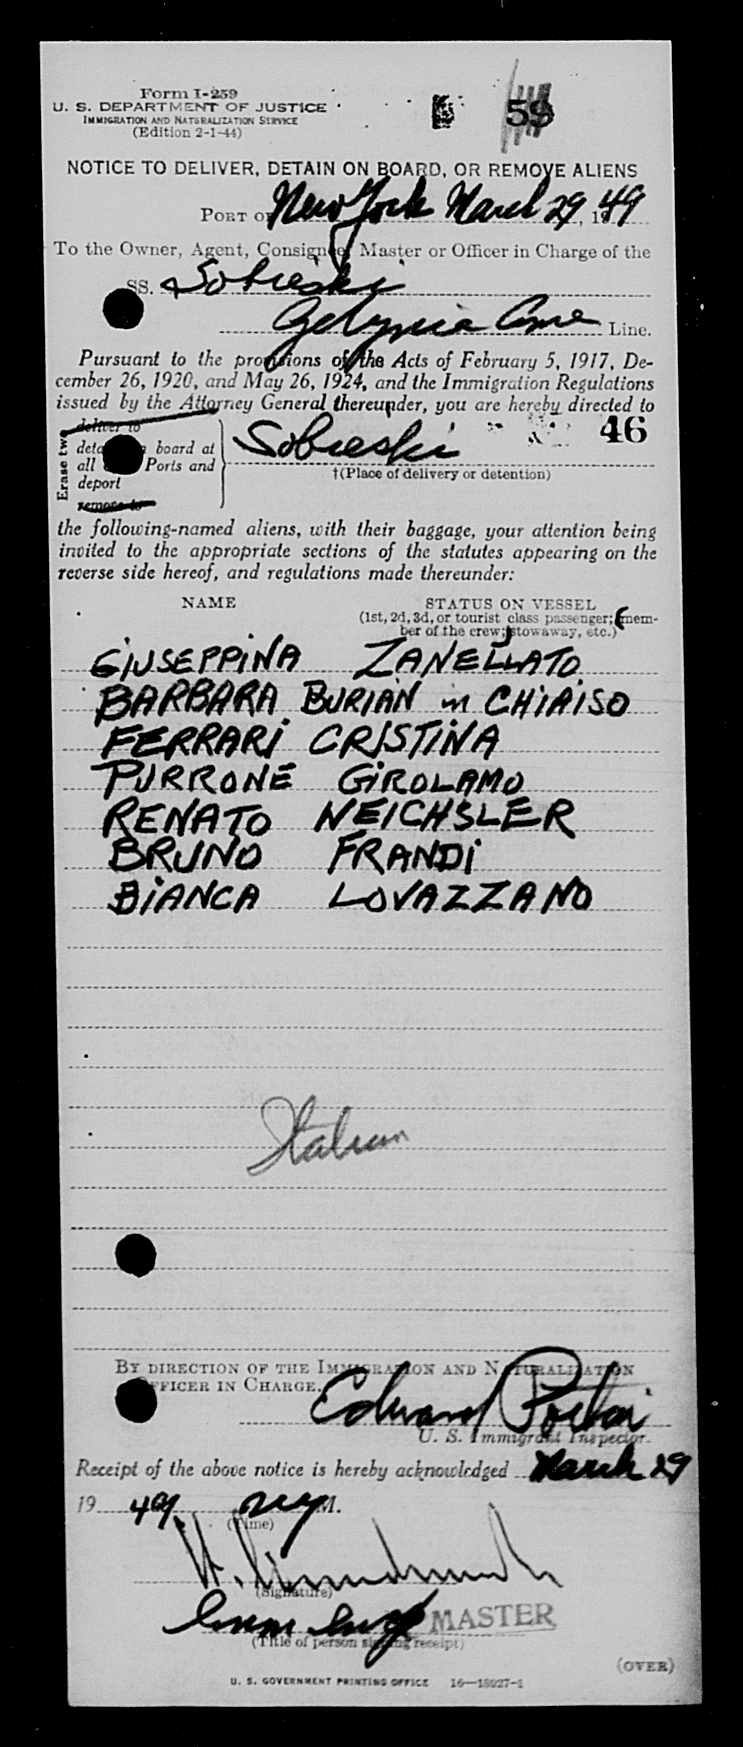 Form I-259
U. S. DEPARTMENT OF JUSTICE
IMMIGRATION AND NATURALIZATION SERVICE
(Edition 2-1-44)
59
NOTICE TO DELIVER, DETAIN ON BOARD, OR REMOVE ALIENS
PORT OF New York March 29, 1949
To the Owner, Agent, Consignee, Master or Officer in Charge of the
SS. Sobieski
Gdynia Ame Line.
Pursuant to the provisions of the Acts of February 5, 1917, De-
cember 26, 1920, and May 26, 1924, and the Immigration Regulations
issued by the Attorney General thereunder, you are hereby directed to
Erase two
deliver to
detain on board at
all Ports and
deport
remove to
Sobieski
46
†(Place of delivery or detention)
the following-named aliens, with their baggage, your attention being
invited to the appropriate sections of the statutes appearing on the
reverse side hereof, and regulations made thereunder:
NAME STATUS ON VESSEL
(1st, 2d, 3d, or tourist class passenger; mem-
ber of the crew; stowaway, etc.)
GIUSEPPINA ZANELLATO
BARBARA BURIAN in CHIAISO
FERRARI CRISTINA
PURRONE GIROLAMO
RENATO NEICHSLER
BRUNO FRANDI
BIANCA LOVAZZANO
Italian
BY DIRECTION OF THE IMMIGRATION AND NATURALIZATION
OFFICER IN CHARGE.
Edward
U. S. Immigrant Inspector.
Receipt of the above notice is hereby acknowledged March 29
19 49 M.
(Time)
(Signature)
MASTER
(Title of person signing receipt)
(OVER)
U. S. GOVERNMENT PRINTING OFFICE 16—18027-1